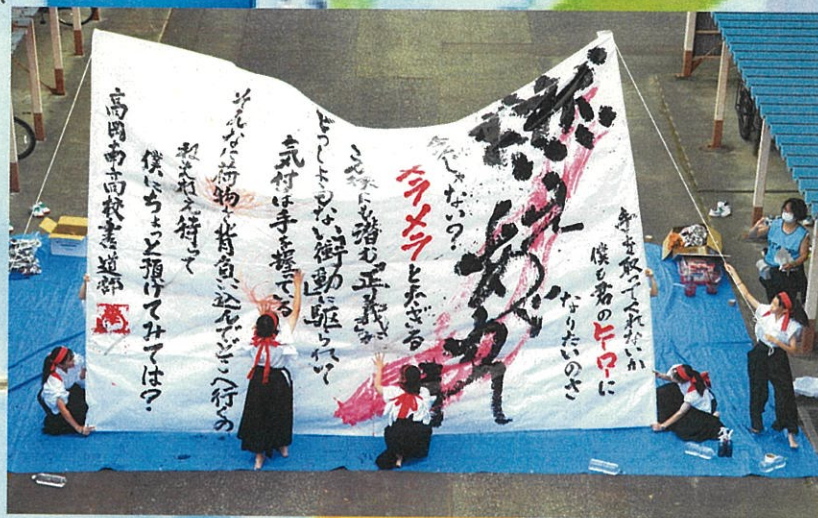 手を取ってくれないか
僕も君のヒーローに
なりたいのさ
じゃない？
メラメラとたぎる
こんな僕にも潜む正義が
どうしようもない衝動に駆られて
気付けば手を握ってる
そんなに荷物を背負い込んでどこへ行くの
ねえねえ待って
僕にちょっと預けてみては？
高岡南高校書道部